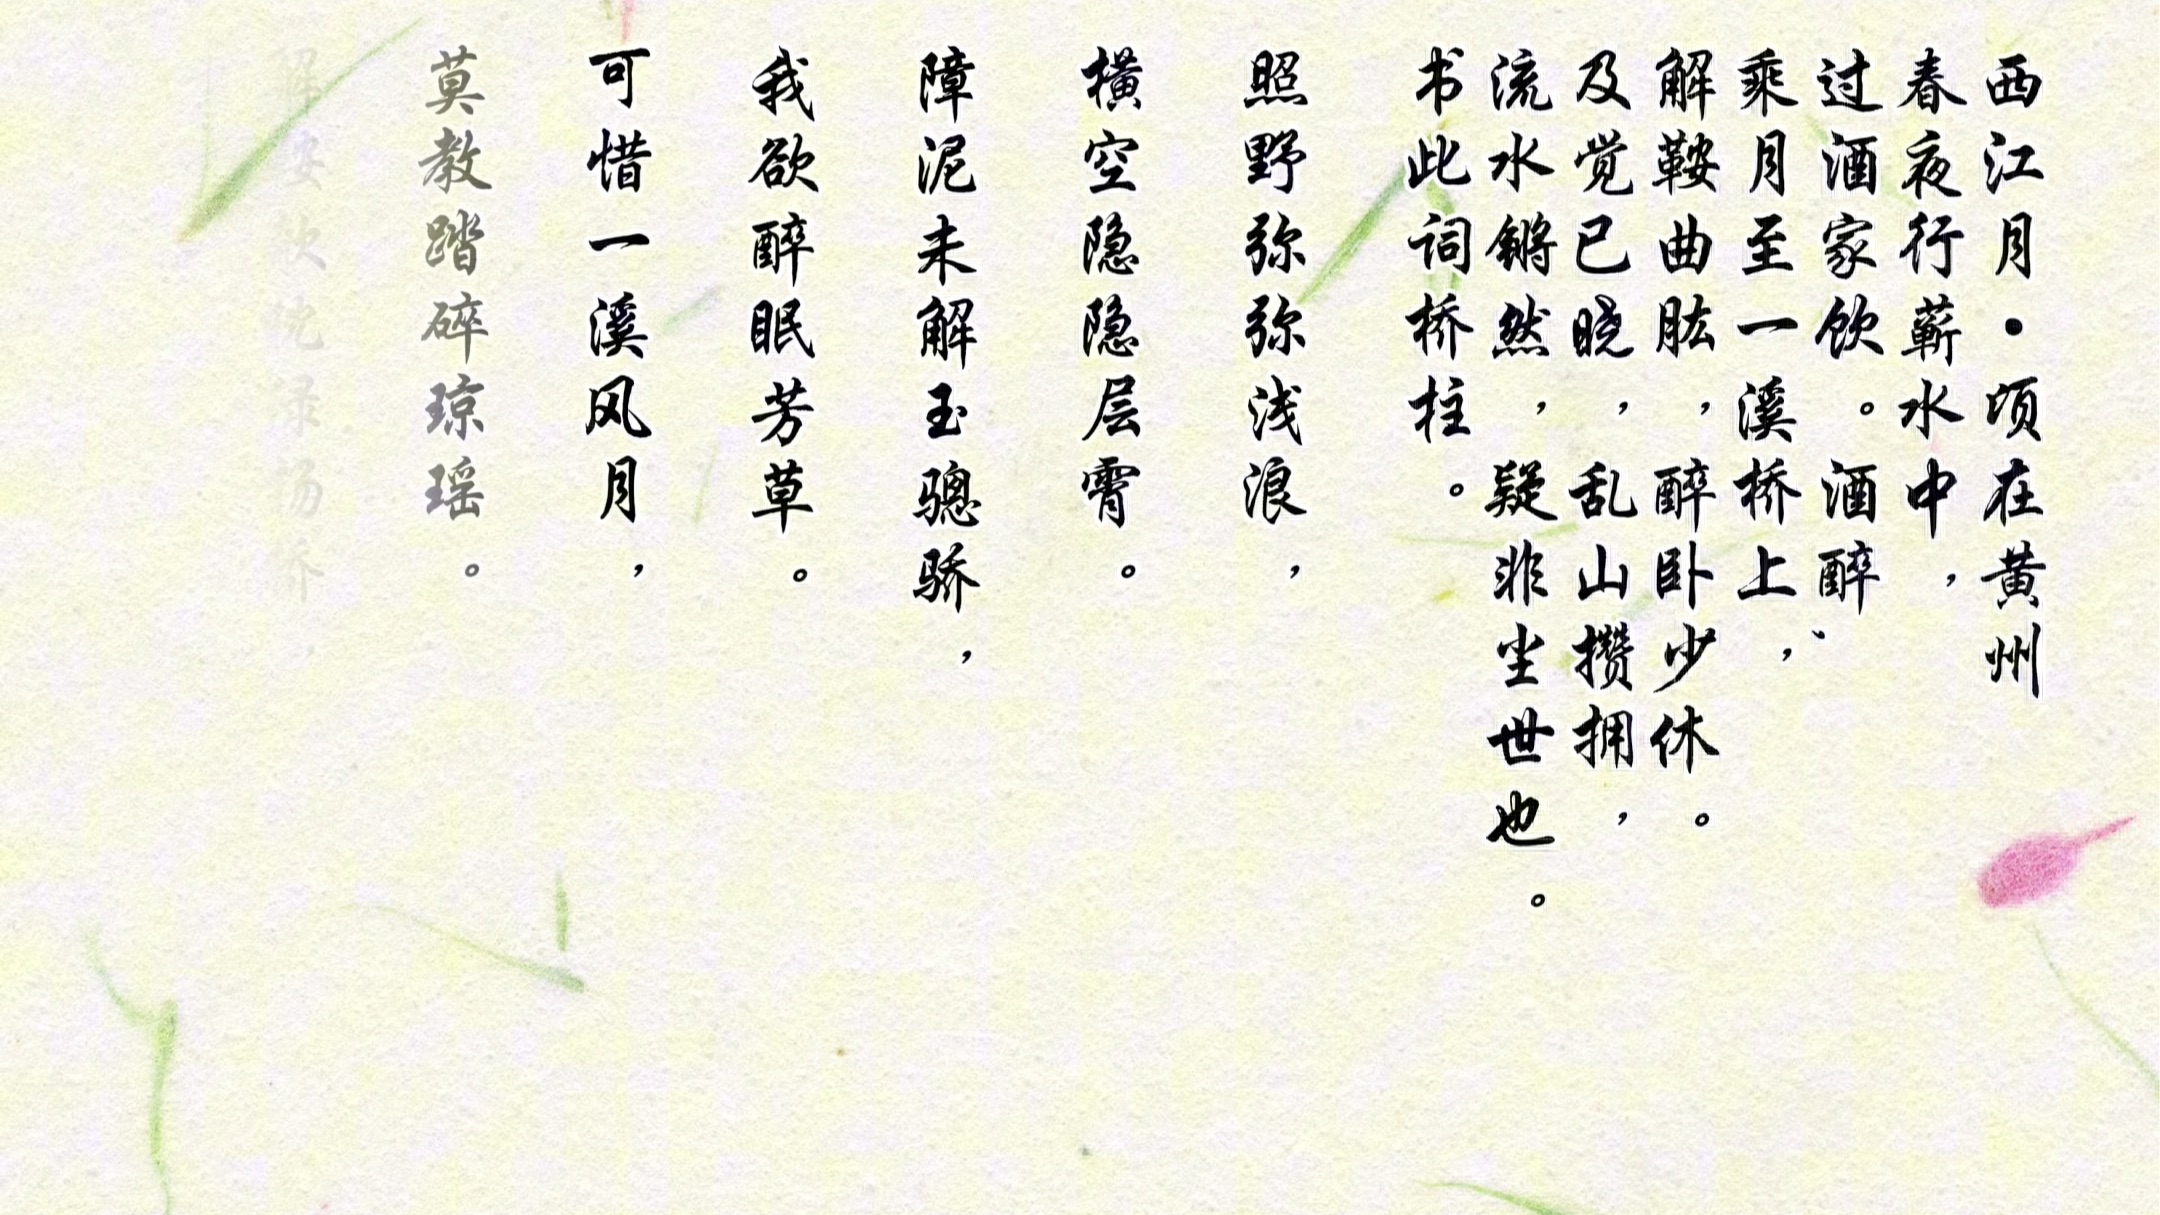 西江月•顷在黄州
春夜行蕲水中，
过酒家饮。酒醉、
乘月至一溪桥上，
解鞍曲肱，醉卧少休。
及觉已晓，乱山攒拥，
流水锵然，疑非尘世也。
书此词桥柱。
照野弥弥浅浪，
横空隐隐层霄。
障泥未解玉骢骄，
我欲醉眠芳草。
可惜一溪风月，
莫教踏碎琼瑶。
解鞍欹枕绿杨桥，